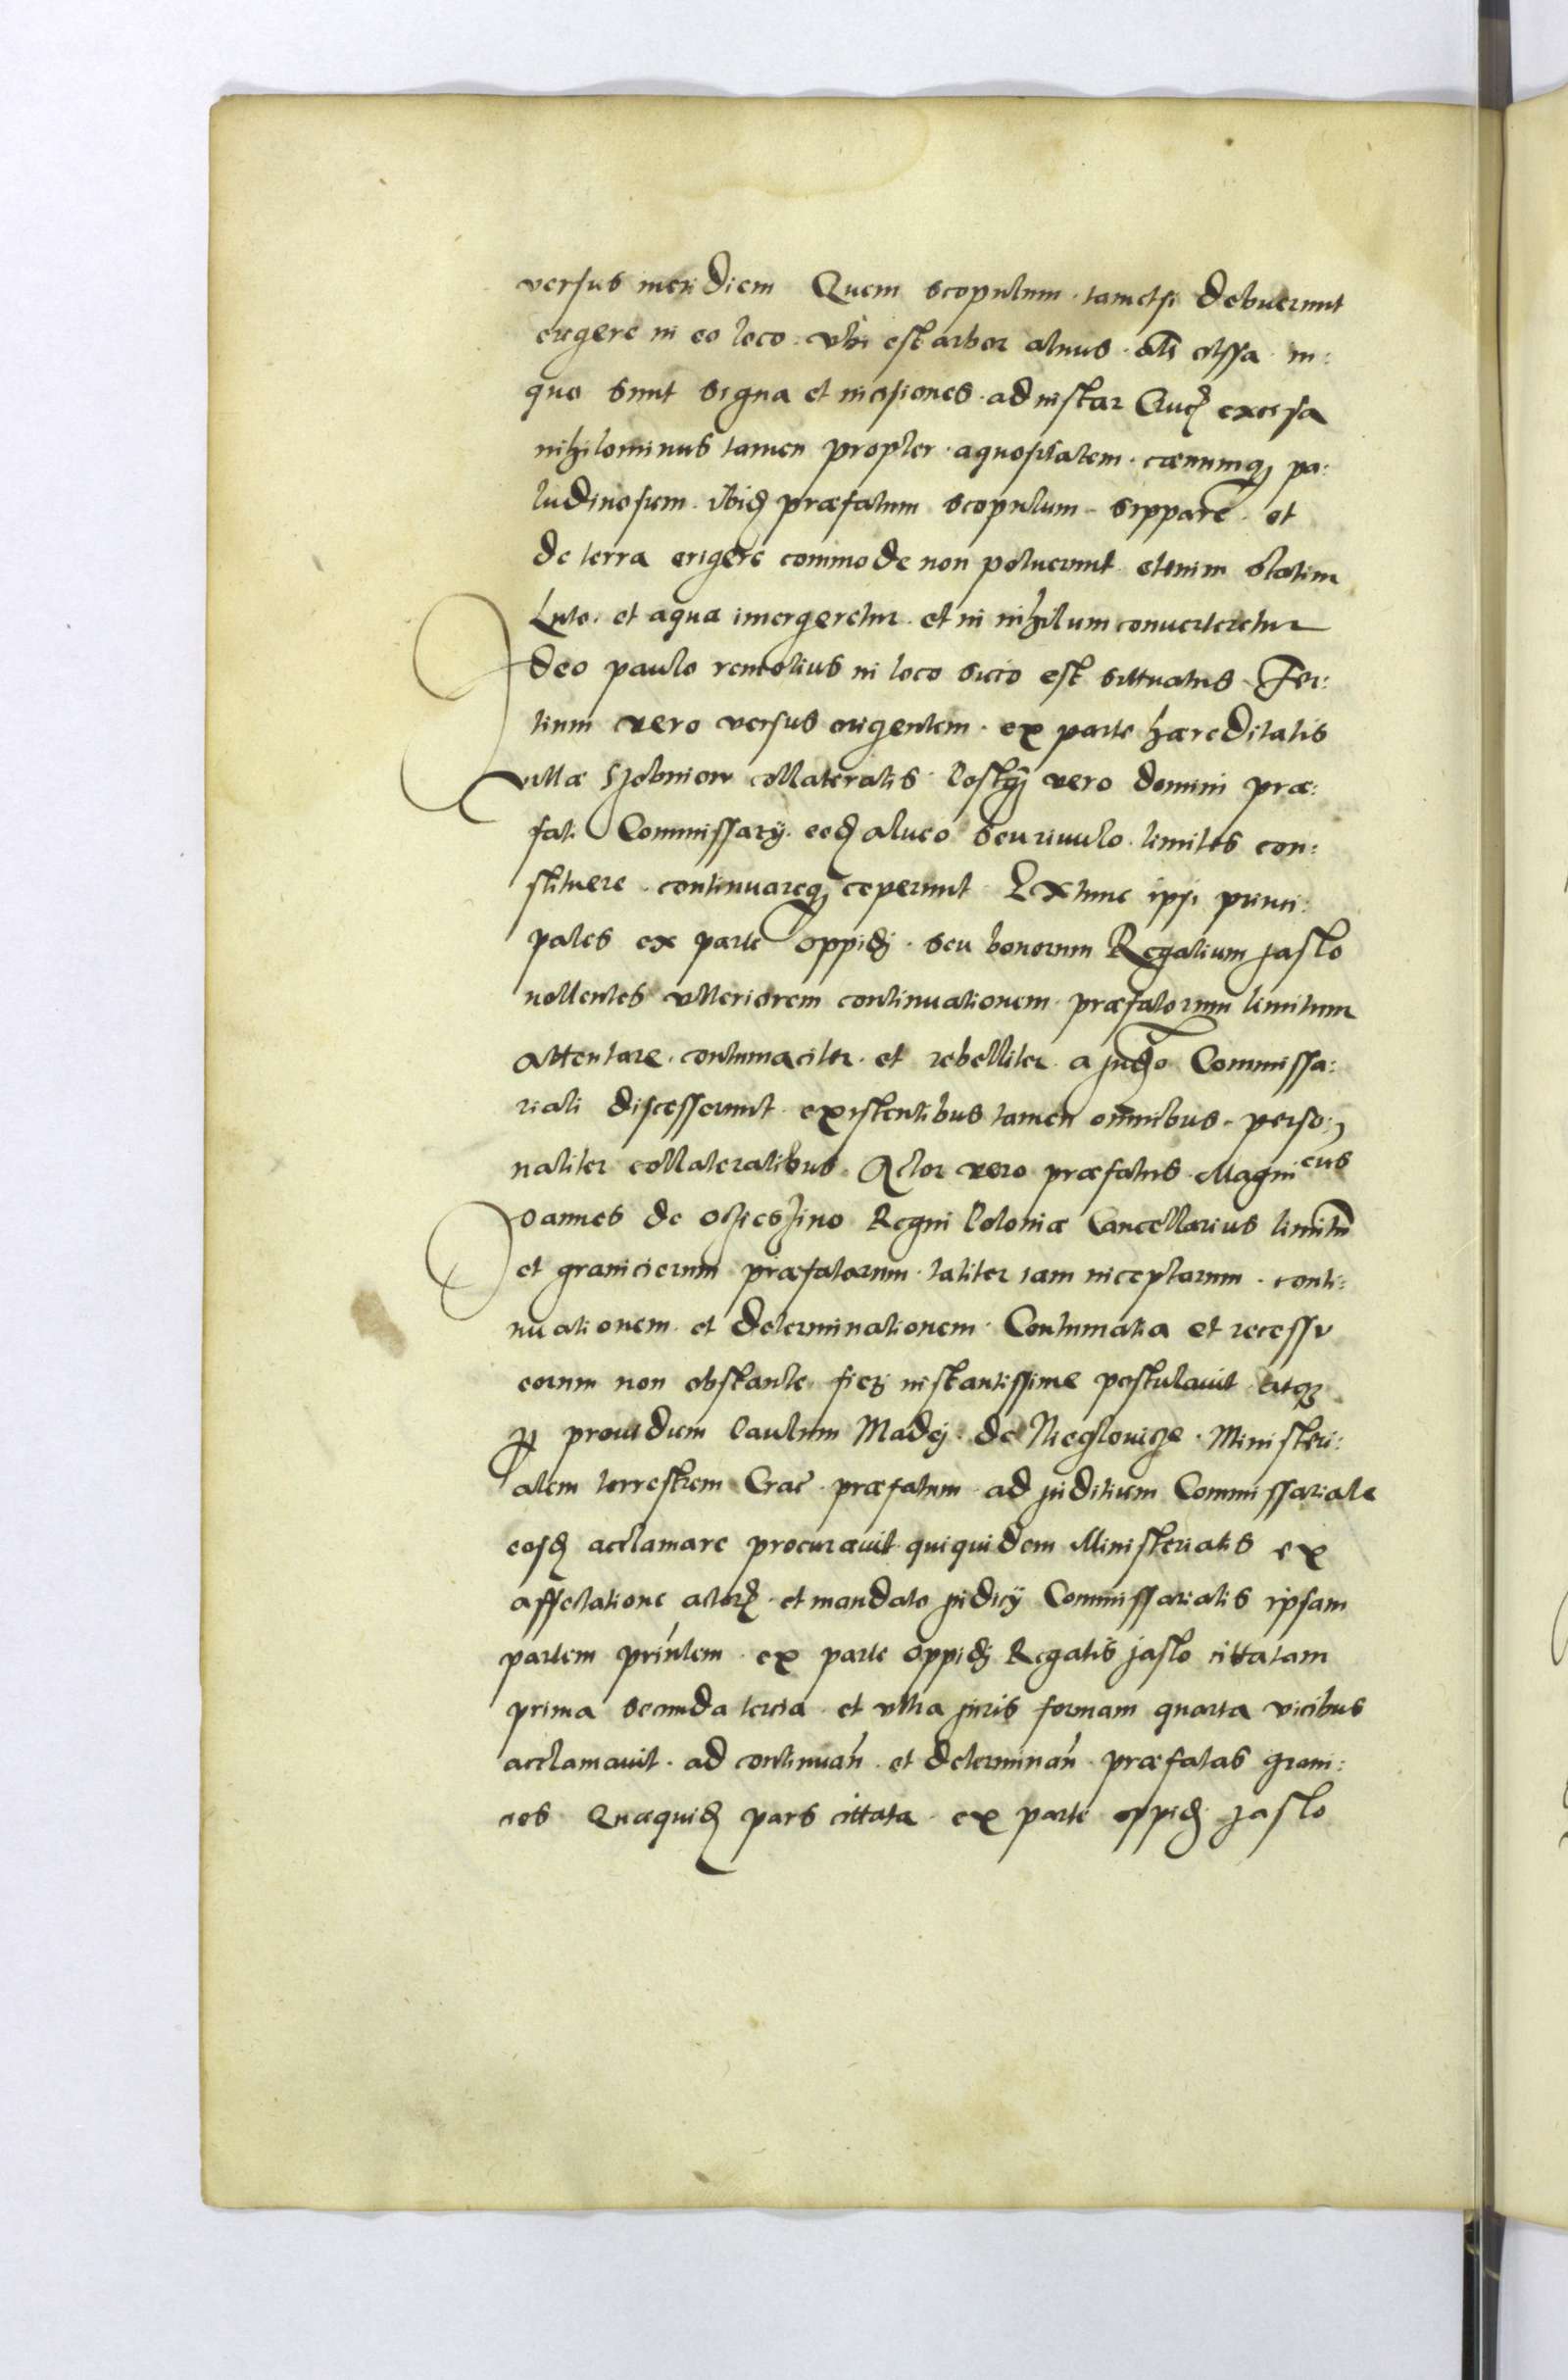 versus meridiem Quem scopulum tametsi debuerunt
erigere in eo loco vbi est arbor alnus al̃s olssa in:
quo sunt signa et incisiones ad instar Cruc̃ excisa
nihilominus tamen propter aquositatem cœnumq3 pa:
ludinosum ibid̃ præfatum scopulum sippare et
de terra erigere commode non potuerunt etenim statim
Luto et aqua imergeretur et in nihilum conuerteretur
Ideo paulo remotius in loco sicco est sittuatus Ter:
tium vero versus origentem ex parte hæreditatis
villæ Sobniow collateralis Postq̃ vero domini præ:
fati Commissarÿ eod̃ alueo seu riuulo limites con:
stituere continuareq3 ceperunt Extunc ipsi princi:
pales ex parte oppidj seu bonorum Regalium Jaslo
nollentes vlteriorem continuationem præfatorum limitum
attentare contumaciter et rebelliter a Judo Commissa:
riali discesserunt existentibus tamen omnibus perso:
naliter collateralibus Actor vero præfatus Magnicus
Joannes de Ocieszino Regni Poloniæ Cancellarius limitũ
et granicierum præfatorum taliter iam inceptarum conti:
nuationem et determinationem Contumatia et recessu
eorum non obstante fieri instantissime postulauit atq3
p prouidum Paulum Madej de Nieglouicze Ministeri:
alem terrestrem Crac̃ præfatum ad juditium Commissariale
eosd̃ acclamare procurauit quiquidem Ministerialis ex
affectatione actor̃ et mandato judicÿ Commissarialis ipsam
partem prin̄lem ex parte oppidj Regalis Jaslo cittatam
prima secunda tercia et vltra juris formam quarta vicibus
acclamauit ad continuan̄ et determinan̄ præfatas grani:
cies Quæquid̃ pars cittata ex parte oppid̃ Jaslo